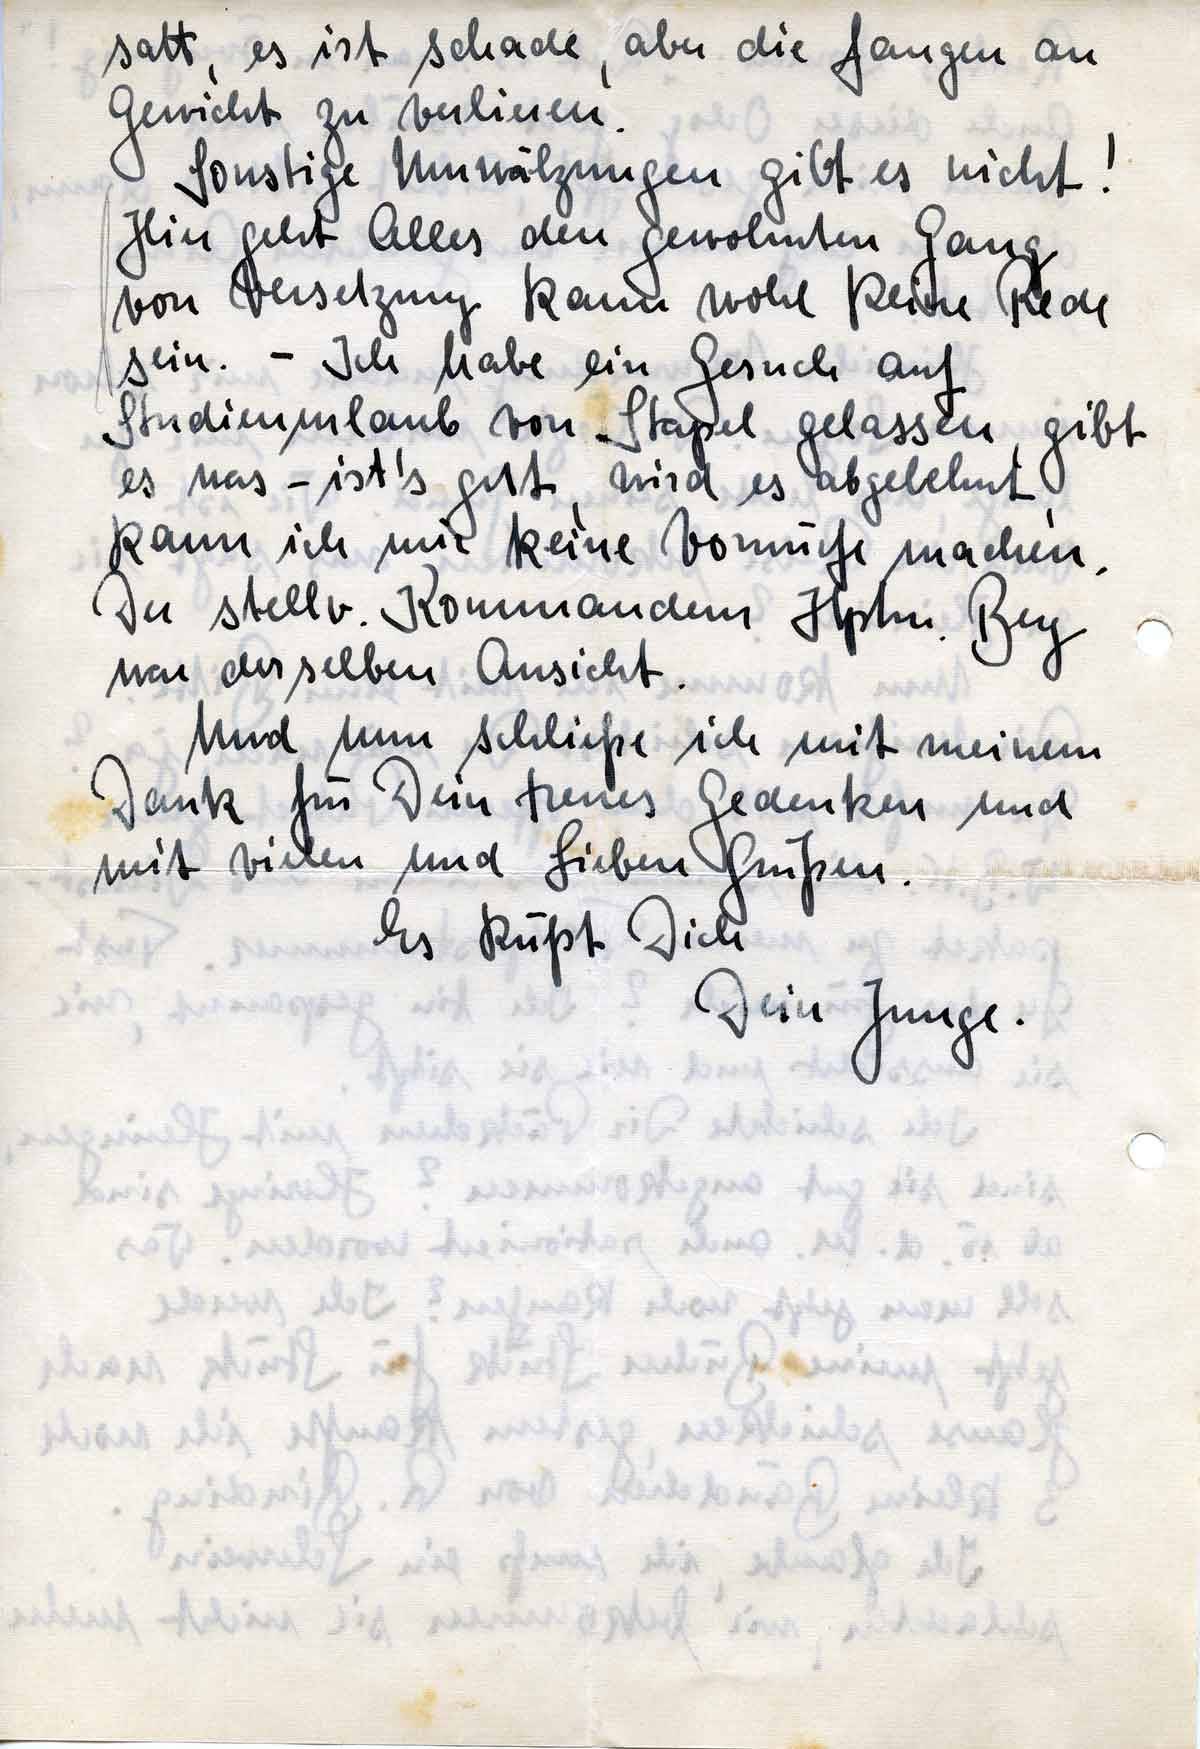 satt, es ist schade, aber die fangen an
Gewicht zu verlieren.
Sonstige Umwälzungen gibt es nicht!
Hier geht Alles den gewohnten Gang
von Versetzung kann wohl keine Rede
sein. - Ich habe ein Gesuch auf
Studienurlaub von Stapel gelassen, gibt
es was - ist's gut, wird es abgelehnt,
kann ich mir keine Vorwürfe machen.
Der stellv. Kommandeur Hptm. Berg
war derselben Ansicht.
Und nun schließe ich mit meinem
Dank für Dein treues Gedenken und
mit vielen und lieben Grüßen.
Es küßt Dich
Dein Junge.